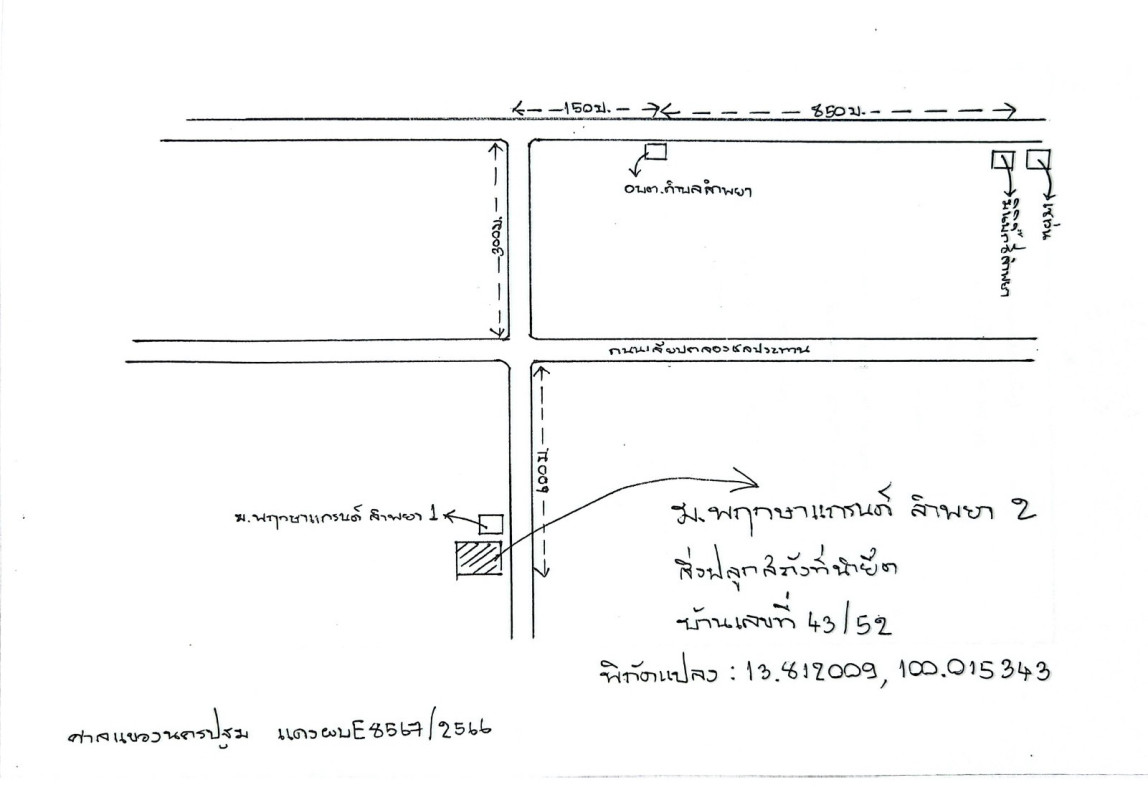 150 ม.
850 ม.
อบต.ตำบลลำพยา
300 ม.
ถนนเลียบคลองชลประทาน
600 ม.
ม.พฤกษาแกรนด์ ลำพยา 1
ม.พฤกษาแกรนด์ ลำพยา 2
สิ่งปลูกสร้างที่นำยึด
บ้านเลขที่ 43/52
พิกัดแปลง : 13.812009, 100.015343
ศาลแขวงนครปฐม แดงผบE8567/2566